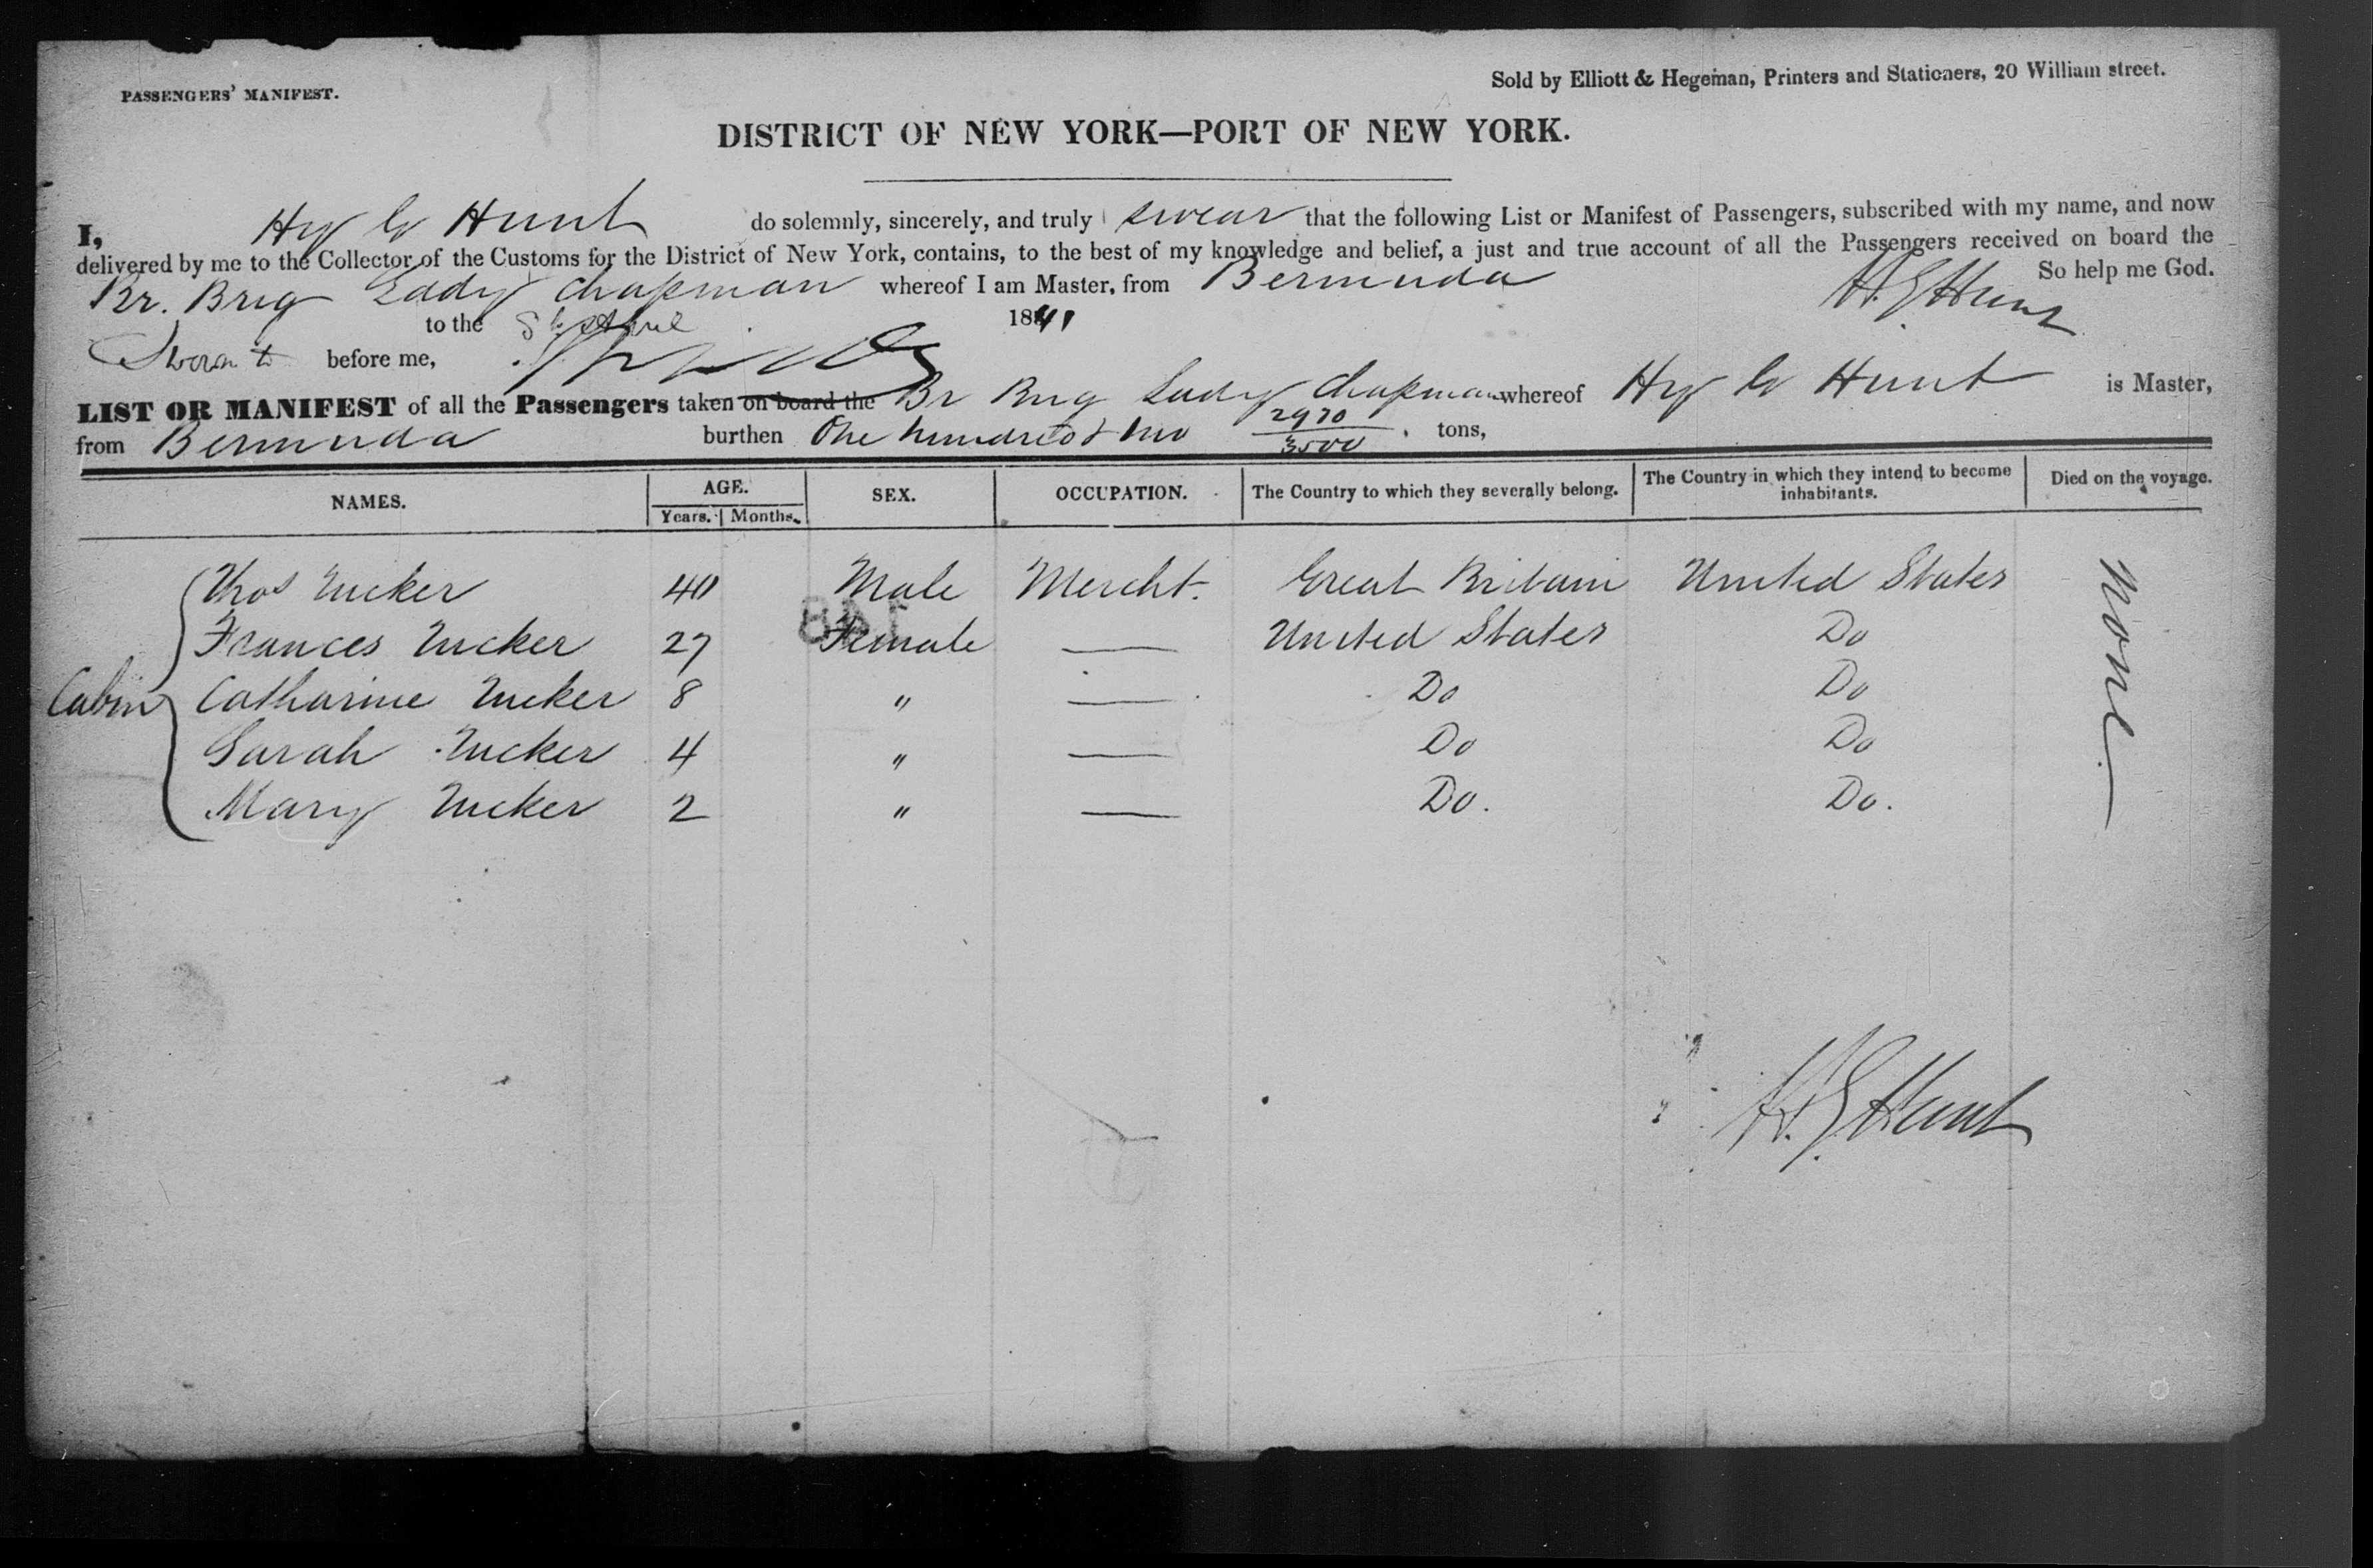 PASSENGERS' MANIFEST.
Sold by Elliott & Hegeman, Printers and Stationers, 20 William street.
DISTRICT OF NEW YORK—PORT OF NEW YORK.
I, Hy G Hunt do solemnly, sincerely, and truly swear that the following List or Manifest of Passengers, subscribed with my name, and now
delivered by me to the Collector of the Customs for the District of New York, contains, to the best of my knowledge and belief, a just and true account of all the Passengers received on board the
Br. Brig Lady Chapman whereof I am Master, from Bermuda So help me God.
H. G Hunt
to the 8th April 1841
Sworn to before me,
LIST OR MANIFEST of all the Passengers taken on board the Br Brig Lady Chapman whereof Hy G Hunt is Master,
from Bermuda burthen One hundred & two 2970/3500 tons,
NAMES. AGE. SEX. OCCUPATION. The Country to which they severally belong. The Country in which they intend to become inhabitants. Died on the voyage.
Years. Months.
Thos Tucker 40 Male Mercht. Great Britain United States
Frances Tucker 27 Female — United States Do
Cabin Catharine Tucker 8 " — Do Do
Sarah Tucker 4 " — Do Do
Mary Tucker 2 " — Do. Do.
None
H. G Hunt